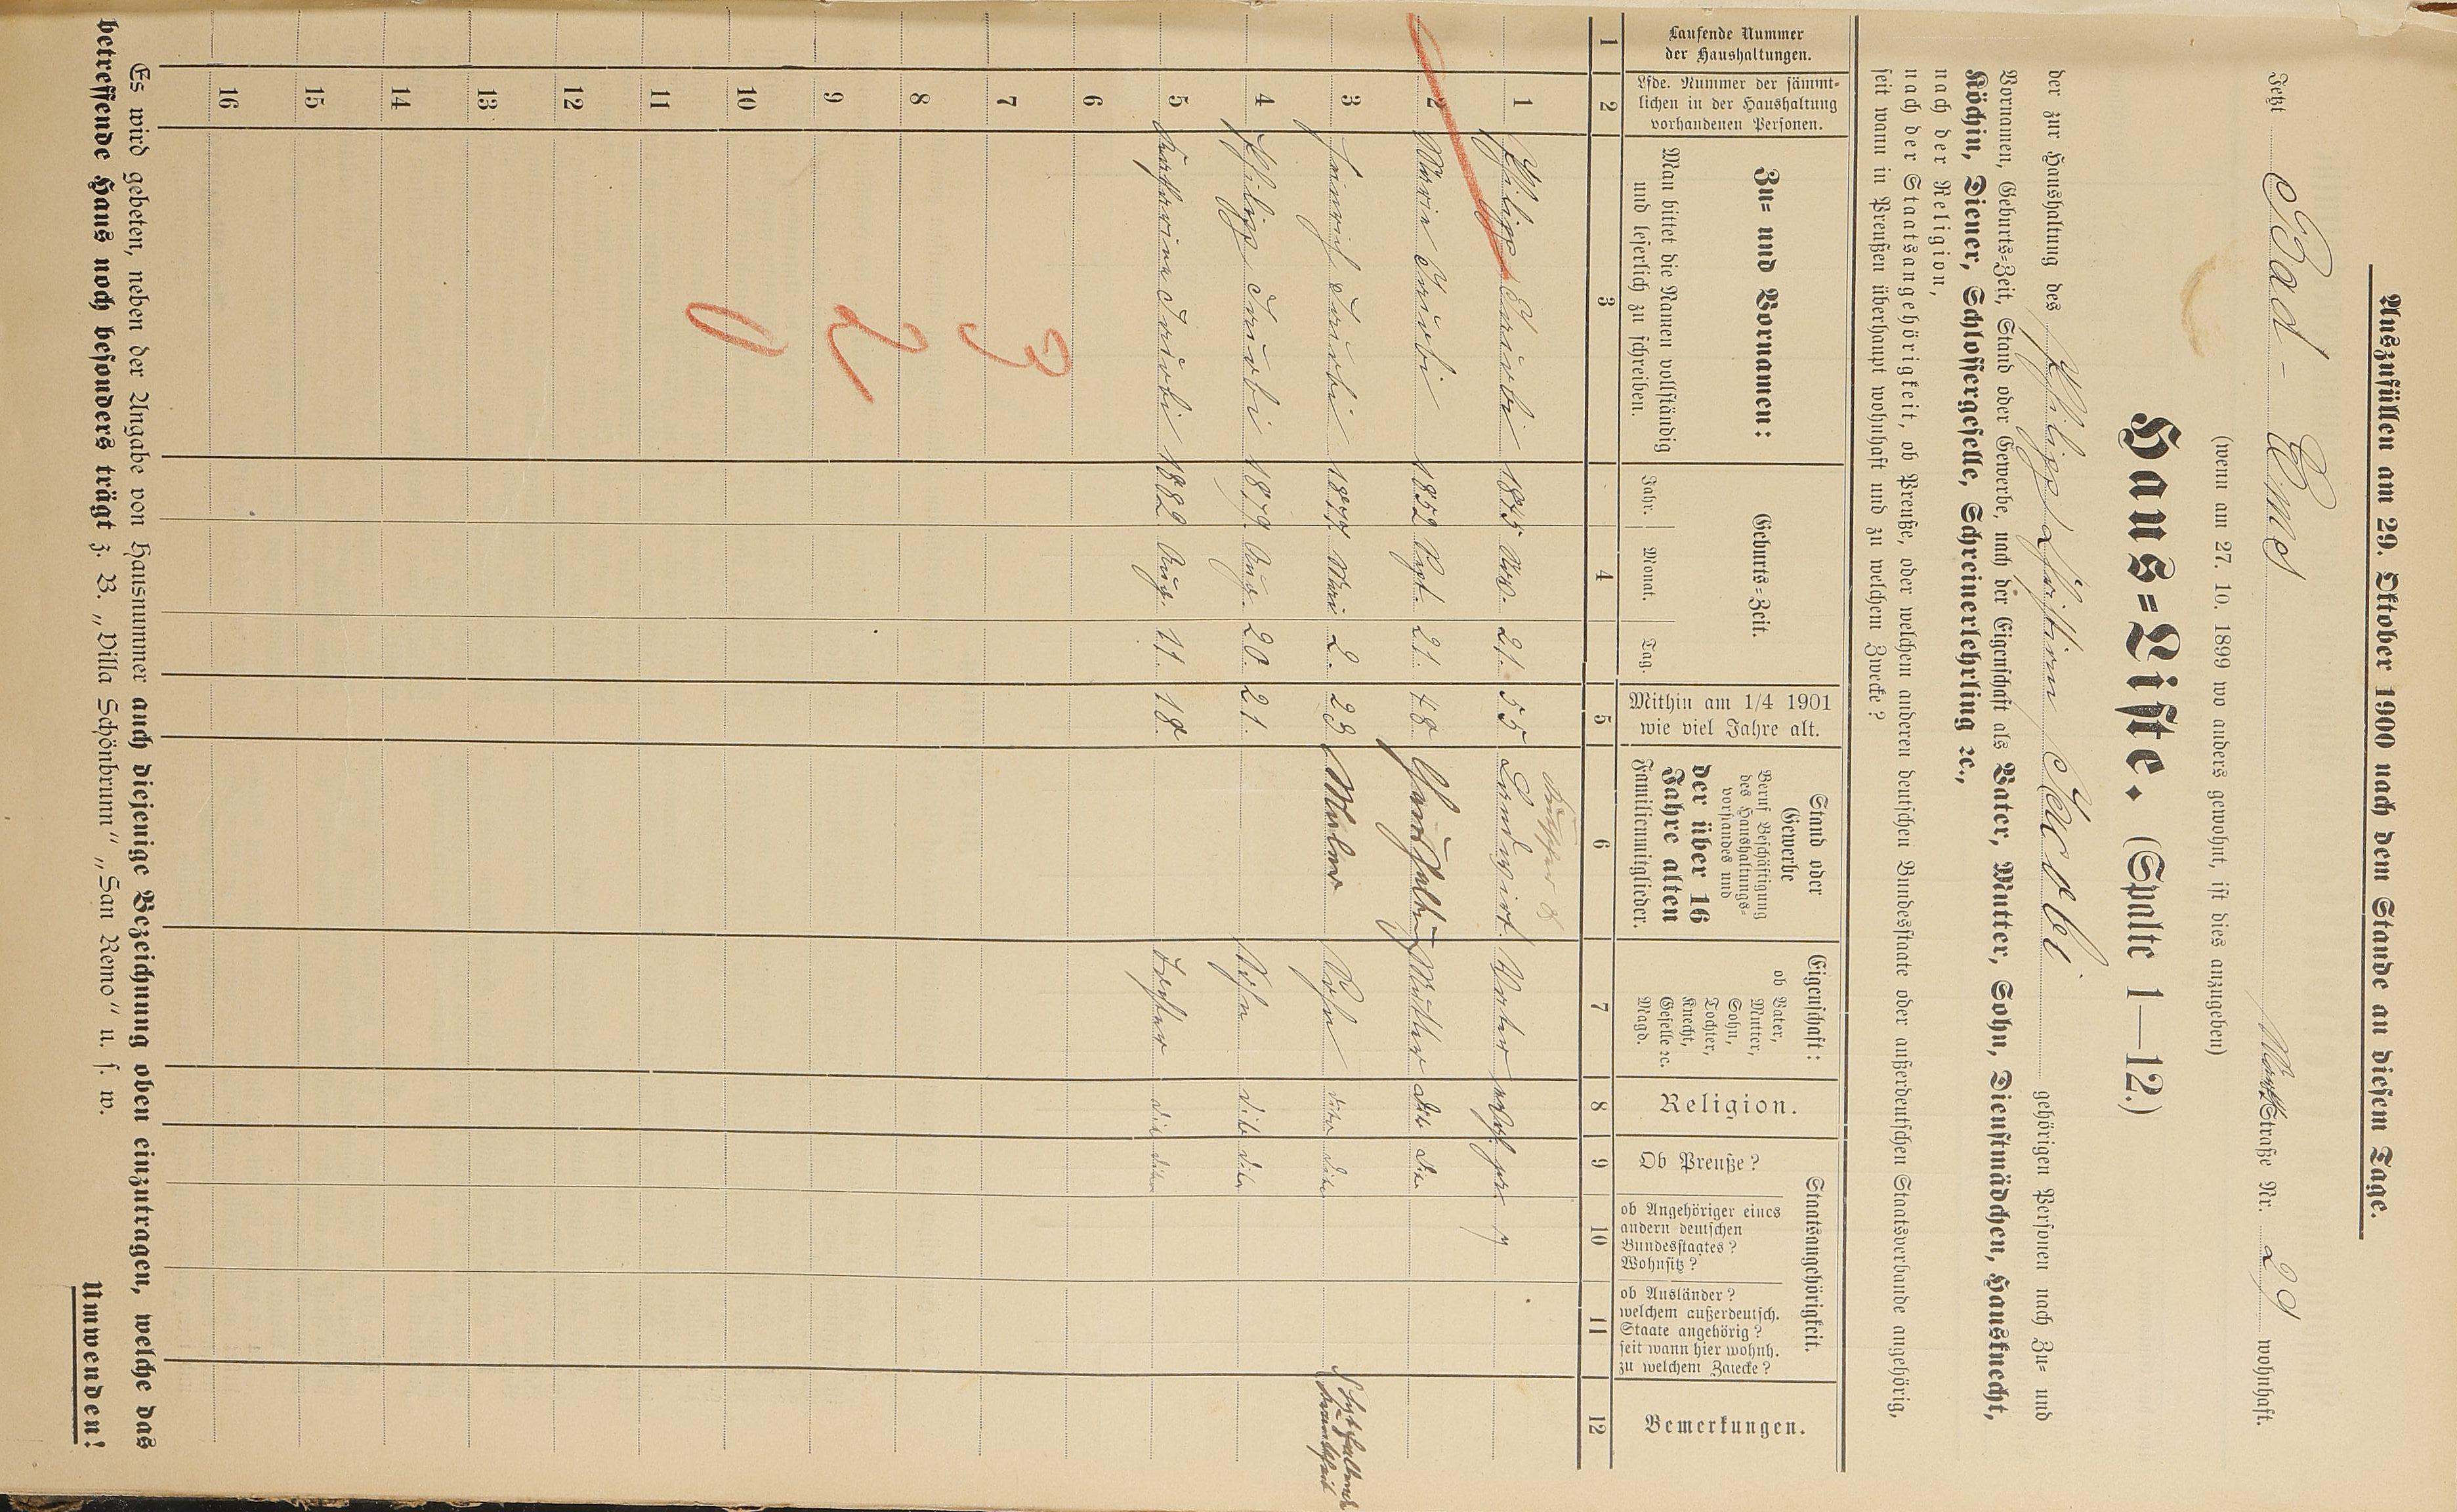 Auszufüllen am 29. Oktober 1900 nach dem Stande an diesem Tage.
Jetzt Bad-Ems Straße Nr. 29 wohnhaft.
(wenn am 27. 10. 1899 wo anders gewohnt, ist dies anzugeben)
Haus=Liste. (Spalte 1—12.)
der zur Haushaltung des Philipp Jacobi gehörigen Personen nach Zu= und
Vornamen, Geburts=Zeit, Stand oder Gewerbe, nach der Eigenschaft als Vater, Mutter, Sohn, Dienstmädchen, Hausknecht,
Köchin, Diener, Schlossergeselle, Schreinerlehrling ꝛc.,
nach der Religion,
nach der Staatsangehörigkeit, ob Preuße, oder welchem anderen deutschen Bundesstaate oder außerdeutschen Staatsverbande angehörig,
seit wann in Preußen überhaupt wohnhaft und zu welchem Zwecke?
Laufende Nummer
der Haushaltungen.
Lfde. Nummer der sämmt-
lichen in der Haushaltung
vorhandenen Personen.
Zu= und Vornamen:
Man bittet die Namen vollständig
und leserlich zu schreiben.
Geburts=Zeit.
Jahr. Monat. Tag.
Mithin am 1/4 1901
wie viel Jahre alt.
Stand oder
Gewerbe
Beruf Beschäftigung
des Haushaltungs=
vorstandes und
der über 16
Jahre alten
Familienmitglieder.
Eigenschaft:
ob Vater,
Mutter,
Sohn,
Tochter,
Knecht,
Geselle ꝛc.
Magd.
Religion.
Staatsangehörigkeit.
Ob Preuße?
ob Angehöriger eines
andern deutschen
Bundesstaates?
Wohnsitz?
ob Ausländer?
welchem außerdeutsch.
Staate angehörig?
seit wann hier wohnh.
zu welchem Zwecke?
Bemerkungen.
1 2 3 4 5 6 7 8 9 10 11 12
1 Philipp Jacobi 1845 Nov. 21. 55 Landwirt. Vater
2 Marie Jacobi 1852 Sept. 21. 48 Mutter dito dito
3 Heinrich Jacobi 1877 Mai 2. 23 Maler Sohn dito dito
4 Philipp Jacobi 1879 Aug. 20. 21. Sohn dito dito
5 Katharina Jacobi 1882 Aug. 11. 18. Tochter dito dito
6
7 3
8
9 2
10 0
11
12
13
14
15
16
Es wird gebeten, neben der Angabe von Hausnummer auch diejenige Bezeichnung oben einzutragen, welche das
betreffende Haus noch besonders trägt z. B. „Villa Schönbrunn“ „San Remo“ u. s. w.
Umwenden!